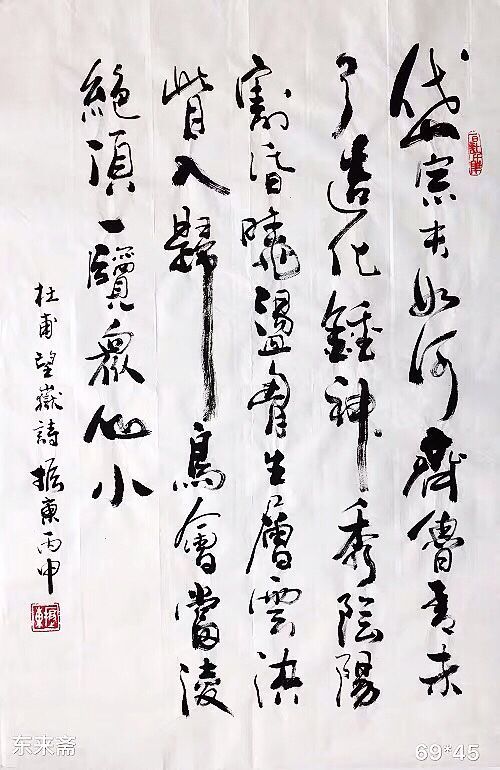 岱宗夫如何齊魯青未
了造化鍾神秀陰陽
割昏曉盪胷生層雲決
眥入歸鳥會當凌
絕頂一覽眾山小
杜甫望嶽詩振東丙申
东来斋
69*45